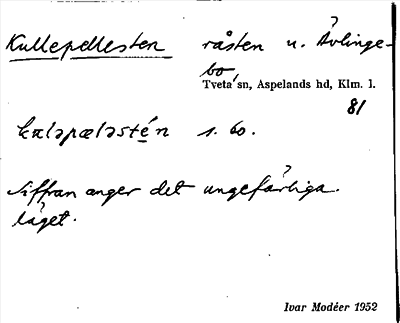 Kullepellesten råsten u. Åvlinge-
bo
Tveta sn, Aspelands hd, Klm. l.
81
kɷləpæləstén s. bo.
Siffran anger det ungefärliga
läget.
Ivar Modéer 1952